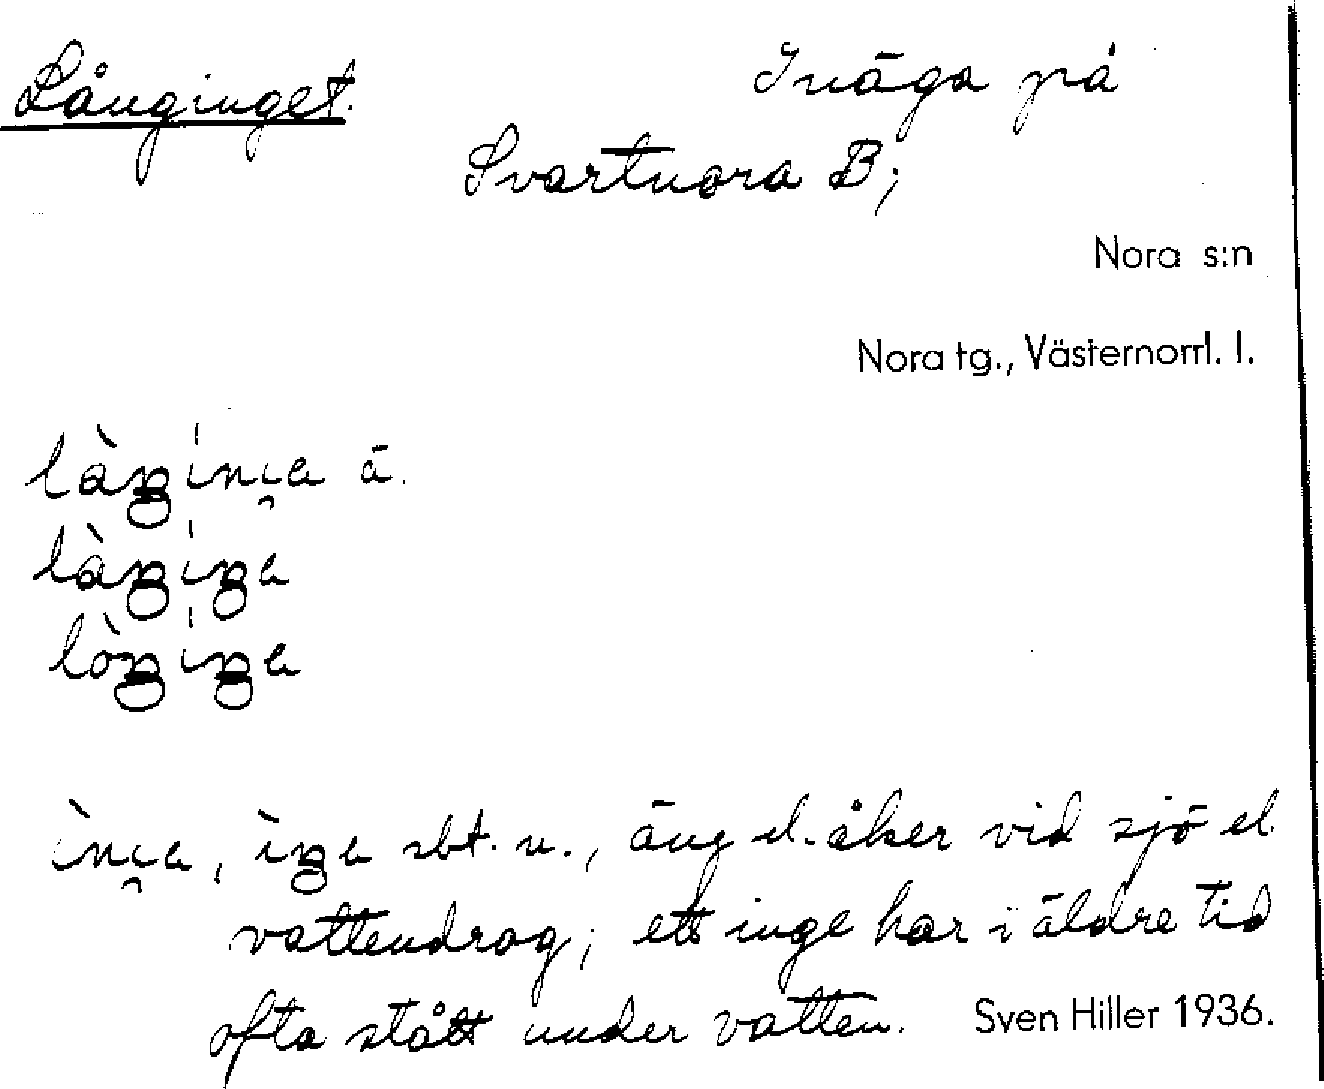 Långinget. Inäga på
Svartnora B;
Nora s:n
Nora tg., Västernorrl. l.
ä.
sbt. n., äng el. åker vid sjö el.
vattendrag; ett inge har i äldre tid
ofta stått under vatten. Sven Hiller 1936.